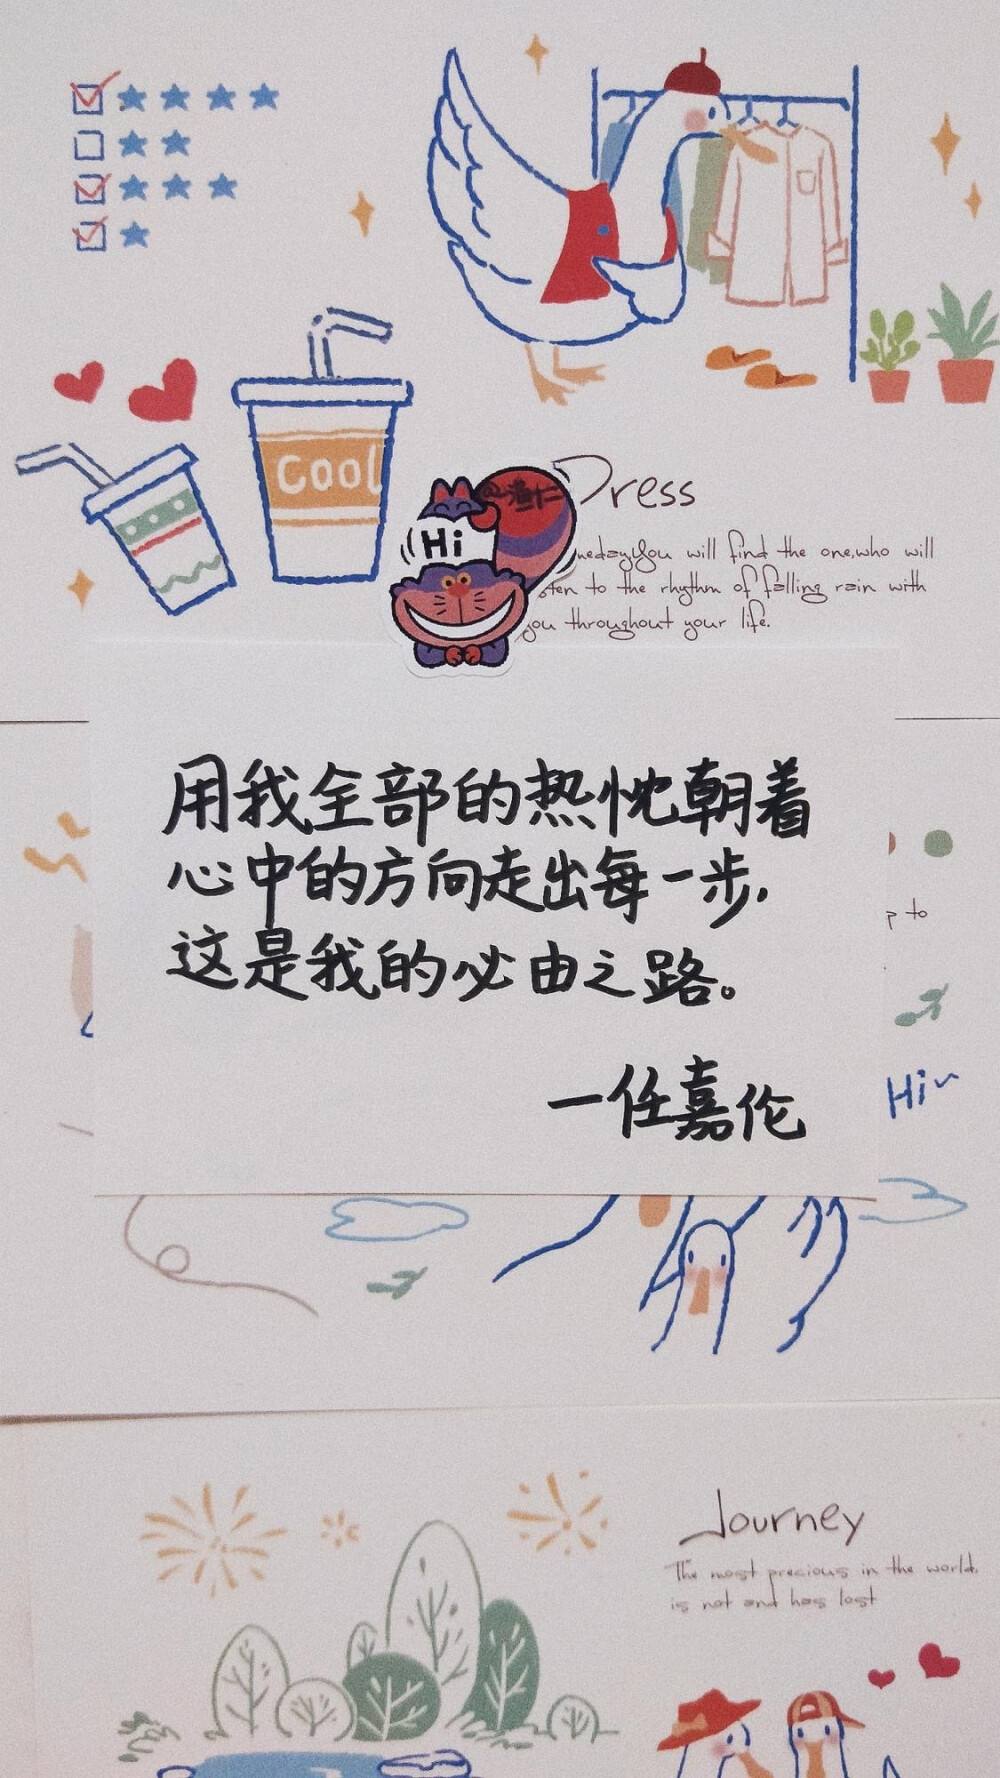 cool
Hi
Dress
you will find the one,who will
to the rhythm of falling rain with
you throughout your life.
用我全部的热忱朝着
心中的方向走出每一步,
这是我的必由之路。
一任嘉伦
to
Hi~
Journey
The most precious in the world.
is not and has lost